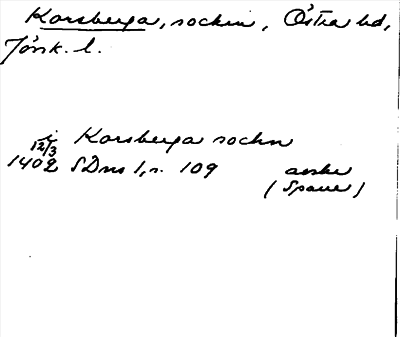 Korsberga, socken, Östra hd,
Jönk. l.
i Korsberga sockn
12/3
1402 SDns 1, s. 109 avskr
(Spaue)